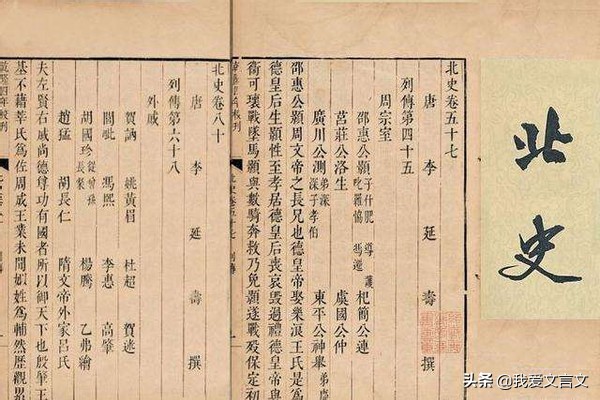 北史
北史卷五十七
唐 李 延 壽 撰
列傳第四十五
周宗室
邵惠公顥 子什肥 導 護 叱羅協 馮遷 杞簡公連
莒莊公洛生 虞國公仲
廣川公測 弟深 深子孝伯 東平公神舉 弟慶
邵惠公顥周文帝之長兄也德皇帝娶樂浪王氏是爲
德皇后生顥性至孝居德皇后喪哀毀過禮德皇帝與
衞可瓌戰墜馬顥與數騎奔救乃免顥遂戰歿保定初
北史卷八十
唐 李 延 壽 撰
列傳第六十八
外戚
賀訥 姚黃眉 杜超 賀迷
閭毗 馮熙 李惠 高肇
胡國珍 從曾孫長粲 楊騰 乙弗繪
趙猛 胡長仁 隋文帝外家呂氏
夫左賢右戚尚德尊功有國者所以御天下也殷肇王
基不藉莘氏爲佐周成王業未聞姒姓爲輔然歷觀
頭条 @我爱文言文